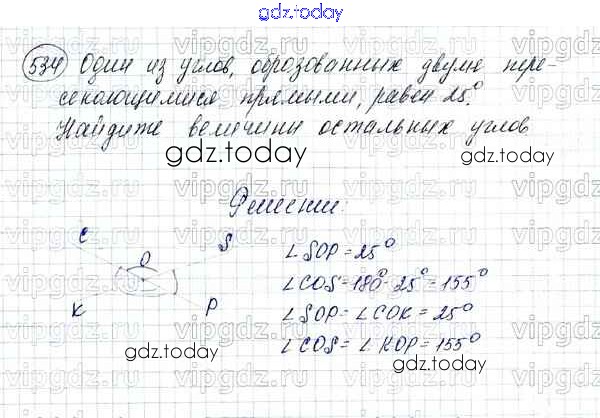 gdz.today
534 Один из углов, образованных двумя пере-
секающимися прямыми, равен 25°.
Найдите величины остальных углов
gdz.today
Решение.
C S
O
K P
∠SOP = 25°
∠COS = 180° - 25° = 155°
∠SOP = ∠COK = 25°
∠COS = ∠KOP = 155°
gdz.today
gdz.today